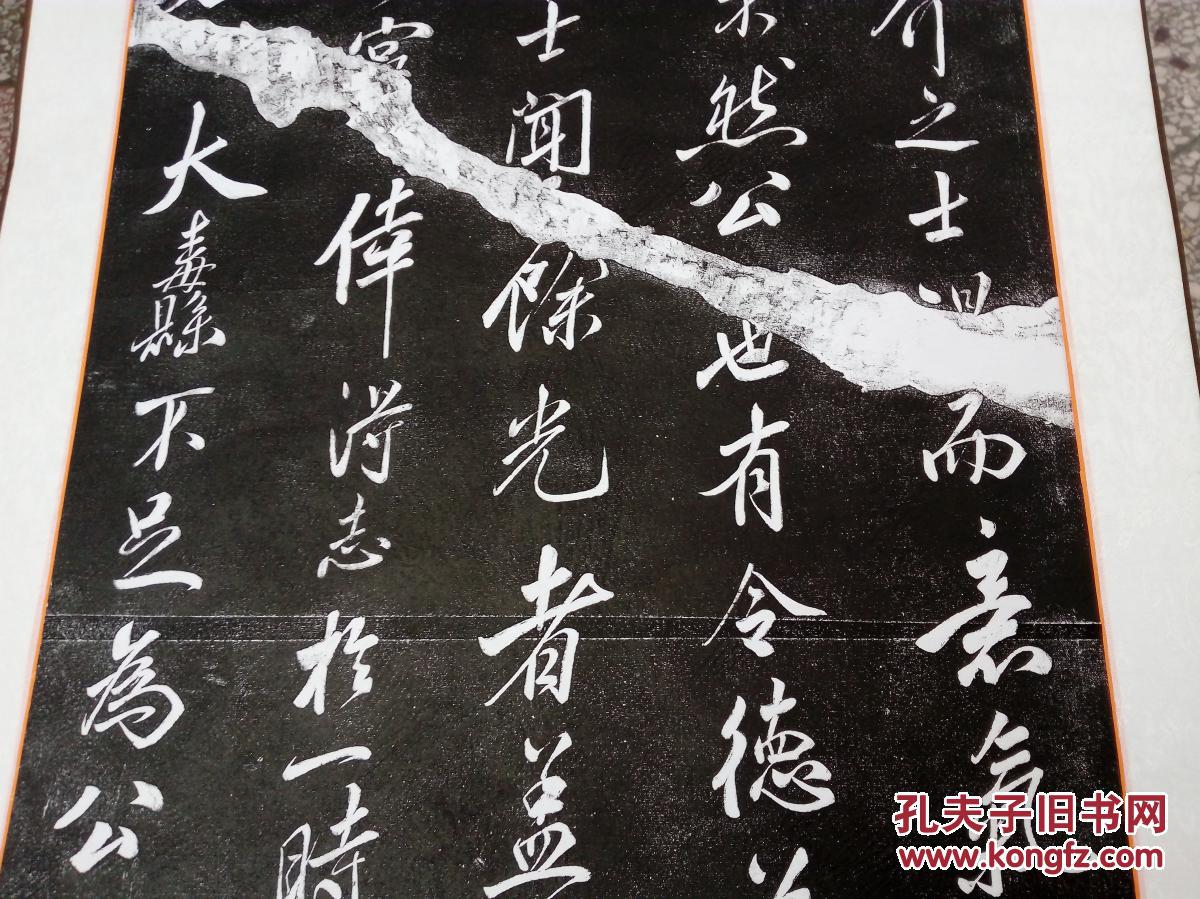 介之士而意氣
然公也有令德
士聞餘光者盖
倖得志於一時
大纛不足為公
孔夫子旧书网
www.kongfz.com